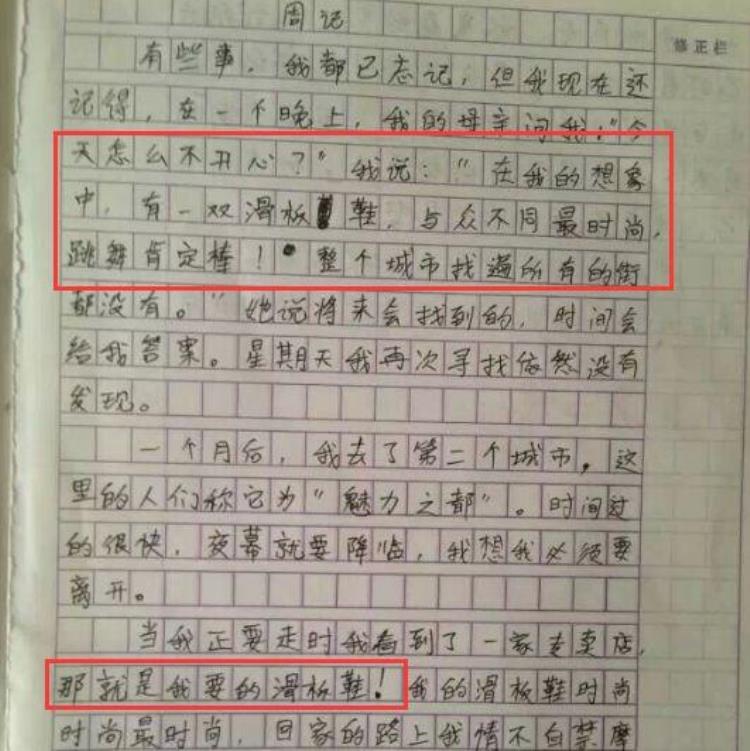 周记
修正栏
有些事，我都已忘记，但我现在还
记得，在一个晚上，我的母亲问我："今
天怎么不开心？"我说："在我的想象
中，有一双滑板鞋，与众不同最时尚，
跳舞肯定棒！整个城市找遍所有的街
都没有。"她说将来会找到的，时间会
给我答案。星期天我再次寻找依然没有
发现。
一个月后，我去了第二个城市，这
里的人们称它为"魅力之都"。时间过
的很快，夜幕就要降临，我想我必须要
离开。
当我正要走时我看到了一家专卖店，
那就是我要的滑板鞋！我的滑板鞋时尚
时尚最时尚，回家的路上我情不自禁摩